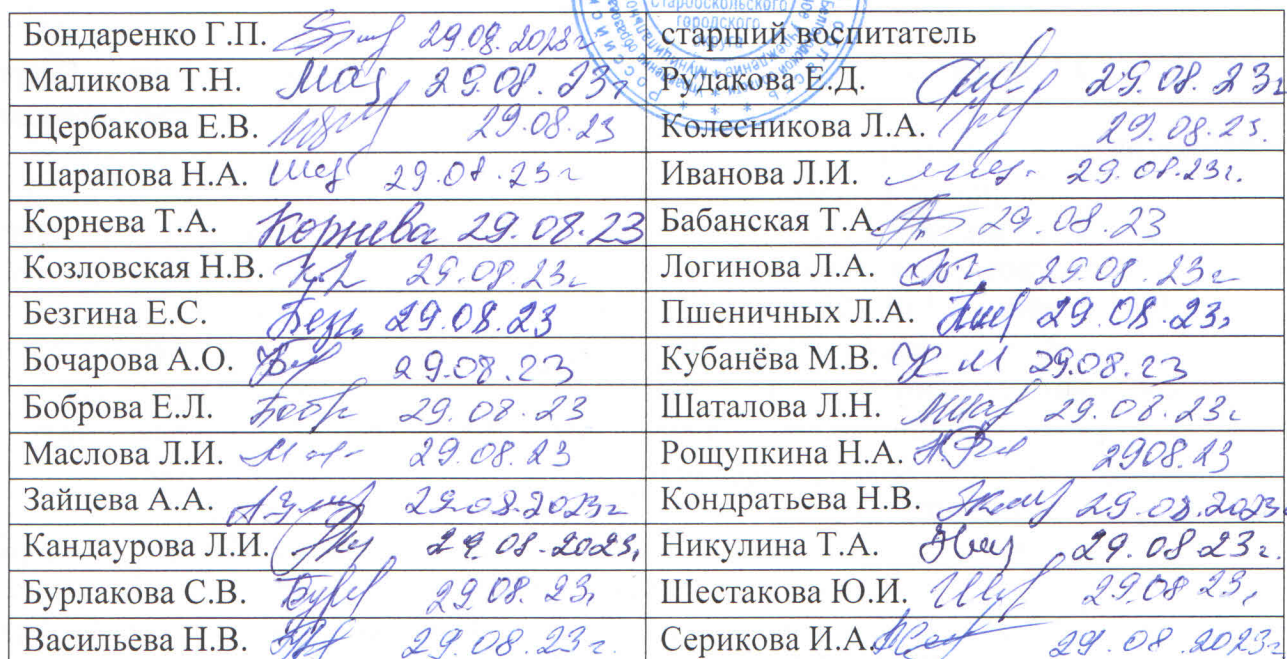 Старооскольского
городского
округа
Бондаренко Г.П. 29.08.2023г старший воспитатель
Маликова Т.Н. 29.08.23г Рудакова Е.Д. 29.08.23г
Щербакова Е.В. 29.08.23 Колесникова Л.А. 29.08.23.
Шарапова Н.А. 29.08.23г Иванова Л.И. 29.08.23г.
Корнева Т.А. Корнева 29.08.23 Бабанская Т.А. 29.08.23
Козловская Н.В. 29.08.23г Логинова Л.А. 29.08.23г
Безгина Е.С. 29.08.23 Пшеничных Л.А. 29.08.23г
Бочарова А.О. 29.08.23 Кубанёва М.В. 29.08.23
Боброва Е.Л. 29.08.23 Шаталова Л.Н. 29.08.23г
Маслова Л.И. 29.08.23 Рощупкина Н.А. 2908.23
Зайцева А.А. 29.08.2023г Кондратьева Н.В. 29.08.2023г
Кандаурова Л.И. 29.08.2023г Никулина Т.А. 29.08.23г.
Бурлакова С.В. 29.08.23г Шестакова Ю.И. 29.08.23г
Васильева Н.В. 29.08.23г. Серикова И.А. 29.08.2023г